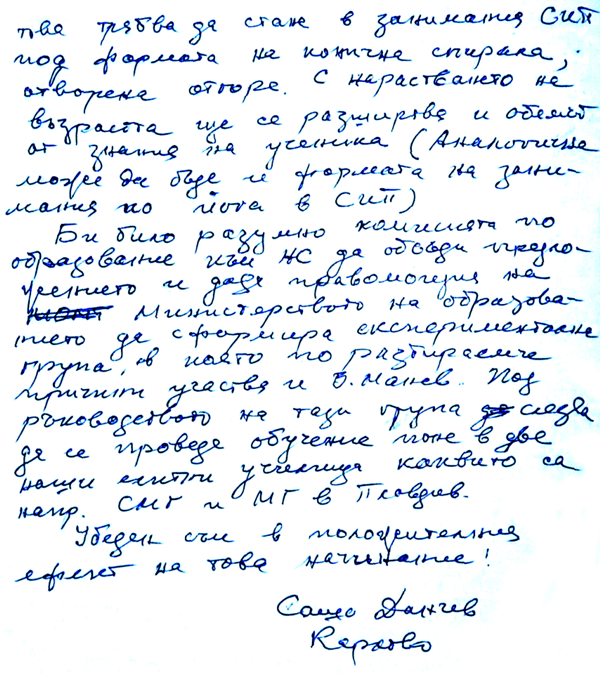 това трябва да стане в занимания СИП
под формата на конична спирала,
отворена отгоре. С нарастването на
възрастта ще се разширява и обемът
от знания на ученика (Аналогична
може да бъде и формата на зани-
мания по йога в СИП)
Би било разумно комисията по
образование към НС да обсъди предло-
жението и даде правомощия на
Министерството на образова-
нието да сформира експериментална
група, в която по разбираеми
причини участва и В. Манев. Под
ръководството на тази група следва
да се проведе обучение поне в две
наши елитни училища каквито са
напр. СМГ и МГ в Пловдив.
Убеден съм в положителния
ефект на това начинание!
Сашо Данчев